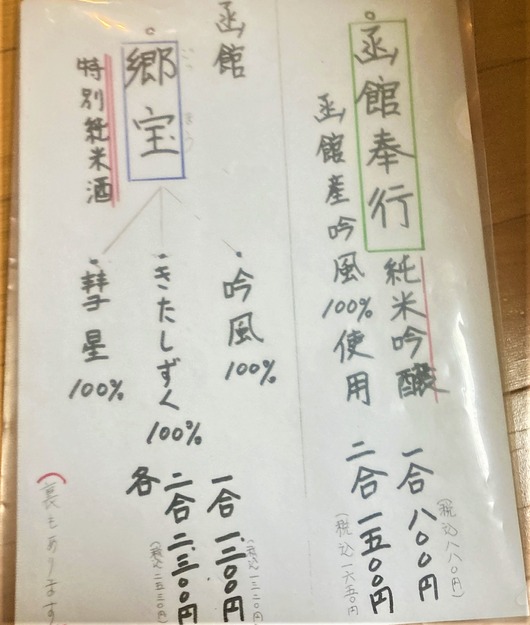 函館奉行
純米吟醸
函館産吟風100%使用
一合 八〇〇円
(税込八八〇円)
二合 一五〇〇円
(税込一六五〇円)
函館
郷宝
ごっ
ほう
特別純米酒
・吟風100%
・きたしずく100%
・彗星100%
各
一合 一二〇〇円
(税込一三二〇円)
二合 二三〇〇円
(税込二五三〇円)
(裏もあります